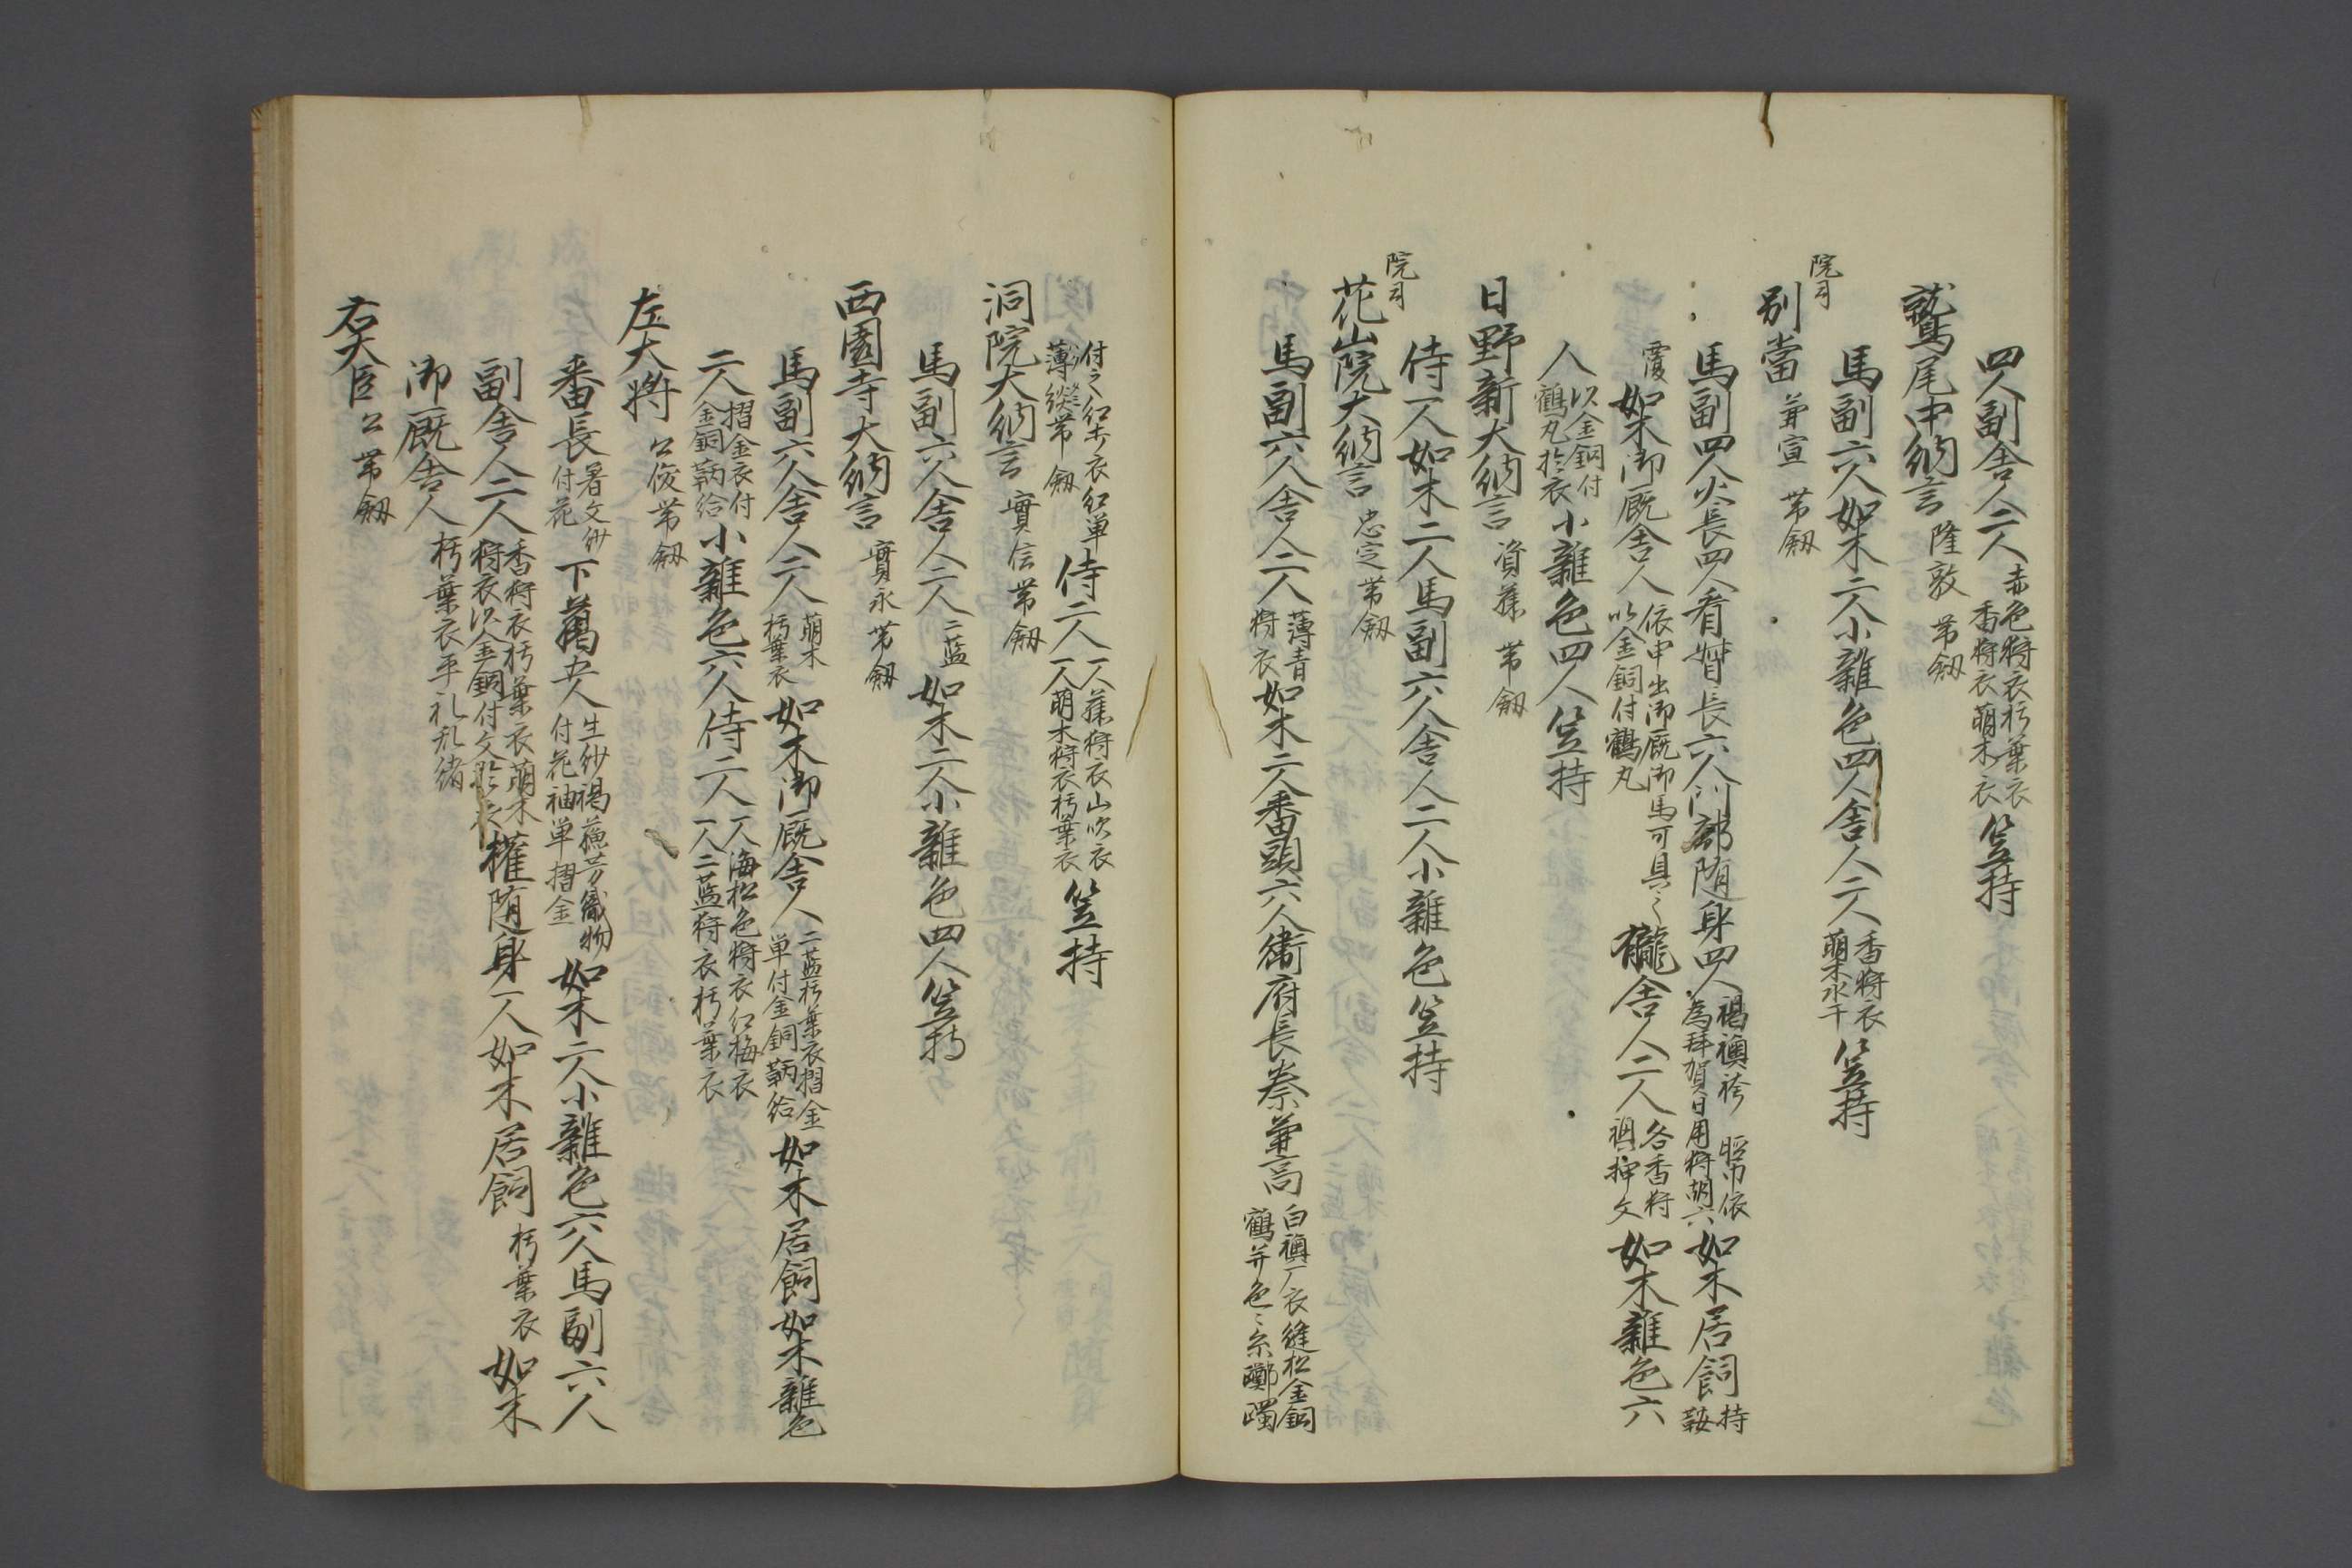 四人副舎人二人赤色狩衣朽葉衣香狩衣萌木衣笠持
鷲尾中納言隆敦帯劔
馬副六人如木二人小雑色四人舎人二人香狩衣萌木水干笠持
院司
別當兼宣帯劔
馬副四人火長四人看督長六人門部随身四人褐襖袴脛巾依為拜賀日用狩胡六如木居飼持鞍
覆如木御厩舎人依申出御厩御馬可具之以金銅付鶴丸舎人二人各香狩押文如木雑色六
人以金銅付鶴丸於衣小雑色四人笠持
日野新大納言資藤帯劔
侍一人如木二人馬副六人舎人二人小雑色笠持
院司
花山院大納言忠定帯劔
馬副六人舎人二人薄青狩衣如木二人番頭六人衛府長秦兼高白襖一衣縫松金銅鶴并色々糸躑躅
付之紅打衣紅単薄帯劔侍二人一人蘇狩衣山吹衣一人萌木狩衣朽葉衣笠持
洞院大納言實信帯劔
馬副六人舎人二人二藍如木二人小雑色四人笠持
西園寺大納言實永帯劔
馬副六人舎人二人萌木朽葉衣如木御厩舎人二藍朽葉衣摺金単付金銅鞆絵如木居飼如木雑色
二人摺金衣付金銅鞆絵小雑色六人侍二人一人海松色狩衣紅梅衣一人二藍狩衣朽葉衣
左大将公俊帯劔
番長着文紗付花下﨟五人生紗褐蘇芳織物付花袖単摺金如木二人小雑色六人馬副六人
副舎人二人香狩衣朽葉衣萌木狩衣以金銅付文権随身一人如木居飼朽葉衣如木
御厩舎人朽葉衣平礼乱緒
右大臣公帯劔